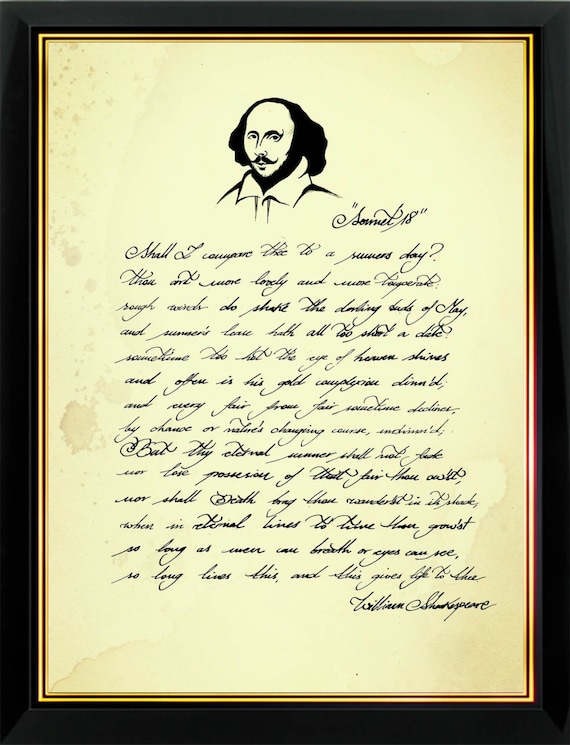 "Sonnet 18"
Shall I compare thee to a summers day?
thou art more lovely and more temperate:
rough winds do shake the darling buds of May,
and summer's lease hath all too short a date:
sometime too hot the eye of heaven shines
and often is his gold complexion dimm'd;
and every fair from fair sometime declines,
by chance or nature's changing course, untrimm'd;
But thy eternal summer shall not fade
nor lose possesion of that fair thou ow'st,
nor shall Death brag thou wanderst in its shade,
when in eternal lines to time thou grow'st
so long as men can breath or eyes can see,
so long lives this, and this gives life to thee
William Shakespeare